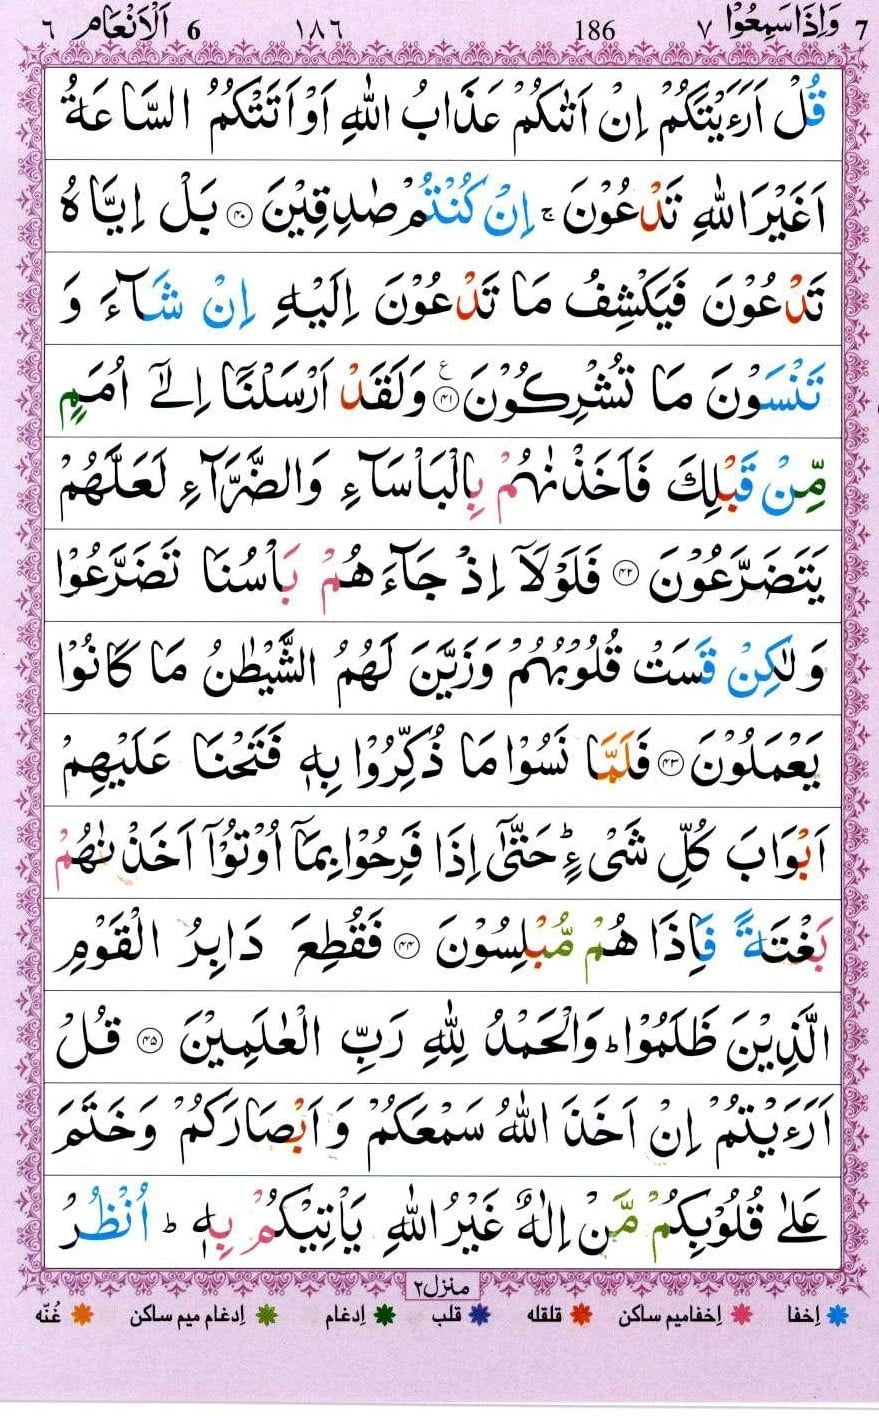 7 وَاِذَا سَمِعُوْا ٧ 186 ١٨٦ 6 اَلْاَنْعَام ٦
قُلْ اَرَءَيْتَكُمْ اِنْ اَتٰىكُمْ عَذَابُ اللّٰهِ اَوْ اَتَتْكُمُ السَّاعَةُ
اَغَيْرَ اللّٰهِ تَدْعُوْنَ ۚ اِنْ كُنْتُمْ صٰدِقِيْنَ ﴿۴۰﴾ بَلْ اِيَّاهُ
تَدْعُوْنَ فَيَكْشِفُ مَا تَدْعُوْنَ اِلَيْهِ اِنْ شَآءَ وَ
تَنْسَوْنَ مَا تُشْرِكُوْنَ ﴿۴۱﴾ ع وَلَقَدْ اَرْسَلْنَاۤ اِلٰۤى اُمَمٍ
مِّنْ قَبْلِكَ فَاَخَذْنٰهُمْ بِالْبَاْسَآءِ وَالضَّرَّآءِ لَعَلَّهُمْ
يَتَضَرَّعُوْنَ ﴿۴۲﴾ فَلَوْلَاۤ اِذْ جَآءَهُمْ بَاْسُنَا تَضَرَّعُوْا
وَلٰكِنْ قَسَتْ قُلُوْبُهُمْ وَزَيَّنَ لَهُمُ الشَّيْطٰنُ مَا كَانُوْا
يَعْمَلُوْنَ ﴿۴۳﴾ فَلَمَّا نَسُوْا مَا ذُكِّرُوْا بِهٖ فَتَحْنَا عَلَيْهِمْ
اَبْوَابَ كُلِّ شَیْءٍ ؕ حَتّٰۤى اِذَا فَرِحُوْا بِمَاۤ اُوْتُوْۤا اَخَذْنٰهُمْ
بَغْتَةً فَاِذَا هُمْ مُّبْلِسُوْنَ ﴿۴۴﴾ فَقُطِعَ دَابِرُ الْقَوْمِ
الَّذِيْنَ ظَلَمُوْا ؕ وَالْحَمْدُ لِلّٰهِ رَبِّ الْعٰلَمِيْنَ ﴿۴۵﴾ قُلْ
اَرَءَيْتُمْ اِنْ اَخَذَ اللّٰهُ سَمْعَكُمْ وَاَبْصَارَكُمْ وَخَتَمَ
عَلٰى قُلُوْبِكُمْ مَّنْ اِلٰهٌ غَيْرُ اللّٰهِ يَاْتِيْكُمْ بِهٖ ؕ اُنْظُرْ
منزل٢
اِخفا اِخفامیم ساکن قلقله قلب اِدغام اِدغام میم ساکن غُنّه